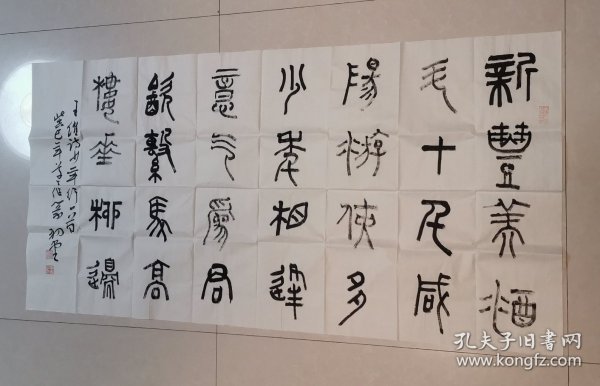 新豐美酒
斗十千咸
陽游俠多
少年相逢
意气為君
飲繫馬高
樓垂柳邊
王維詩少年行一首
癸巳年
孔夫子旧书网
www.kongfz.com